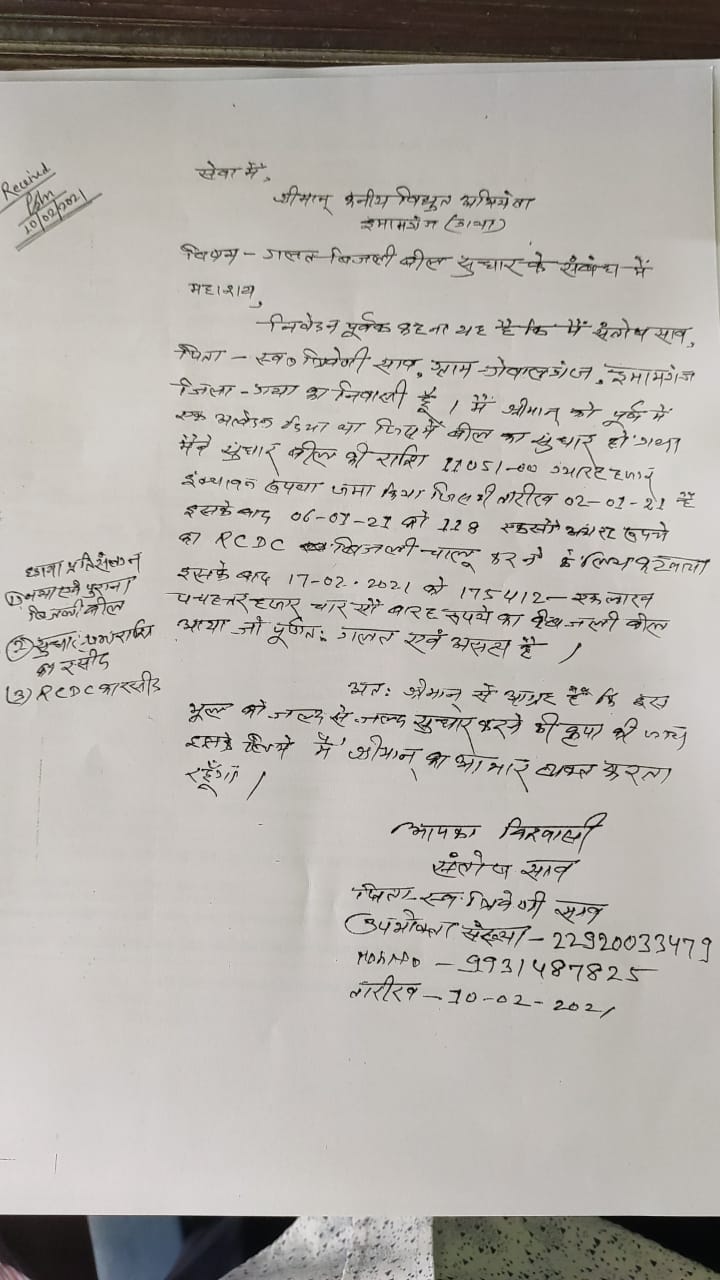 Received
10/02/2021
सेवा में,
श्रीमान् कनीय विद्युत अभियंता
इमामगंज (गया)
विषय - गलत बिजली बील सुधार के संबंध में
महाशय,
निवेदन पूर्वक कहना यह है कि मैं संतोष साव,
पिता - स्व० त्रिवेणी साव, ग्राम - गेवालगंज, इमामगंज
जिला - गया का निवासी हूँ। मैं श्रीमान् को पूर्व में
एक आवेदन दिया था जिसमें बील का सुधार हो गया
मैंने सुधार बील की राशि 11051-00 ग्यारह हजार
इक्यावन रूपया जमा किया जिसकी तारीख 02-01-21 है
इसके बाद 06-01-21 को 118 एक सौ अठारह रूपये
का RCDC बिजली चालू करने के लिये कटवाया
इसके बाद 17-02-2021 को 175412- एक लाख
पचहत्तर हजार चार सौ बारह रूपये का बिजली बील
आया जो पूर्णतः गलत एवं असत्य है।
अतः श्रीमान् से आग्रह है कि इस
भूल को जल्द से जल्द सुधार करने की कृपा की जाय
इसके लिये मैं श्रीमान् का आभार व्यक्त करता
रहूँगा।
छाया प्रति संलग्न
① नया एवं पुराना
बिजली बील
② सुधार राशि
का रसीद
(3) RCDC का रसीद
आपका विश्वासी
संतोष साव
पिता - स्व. त्रिवेणी साव
उपभोक्ता संख्या - 22920033479
- 9931487825
तारीख - 10-02-2021